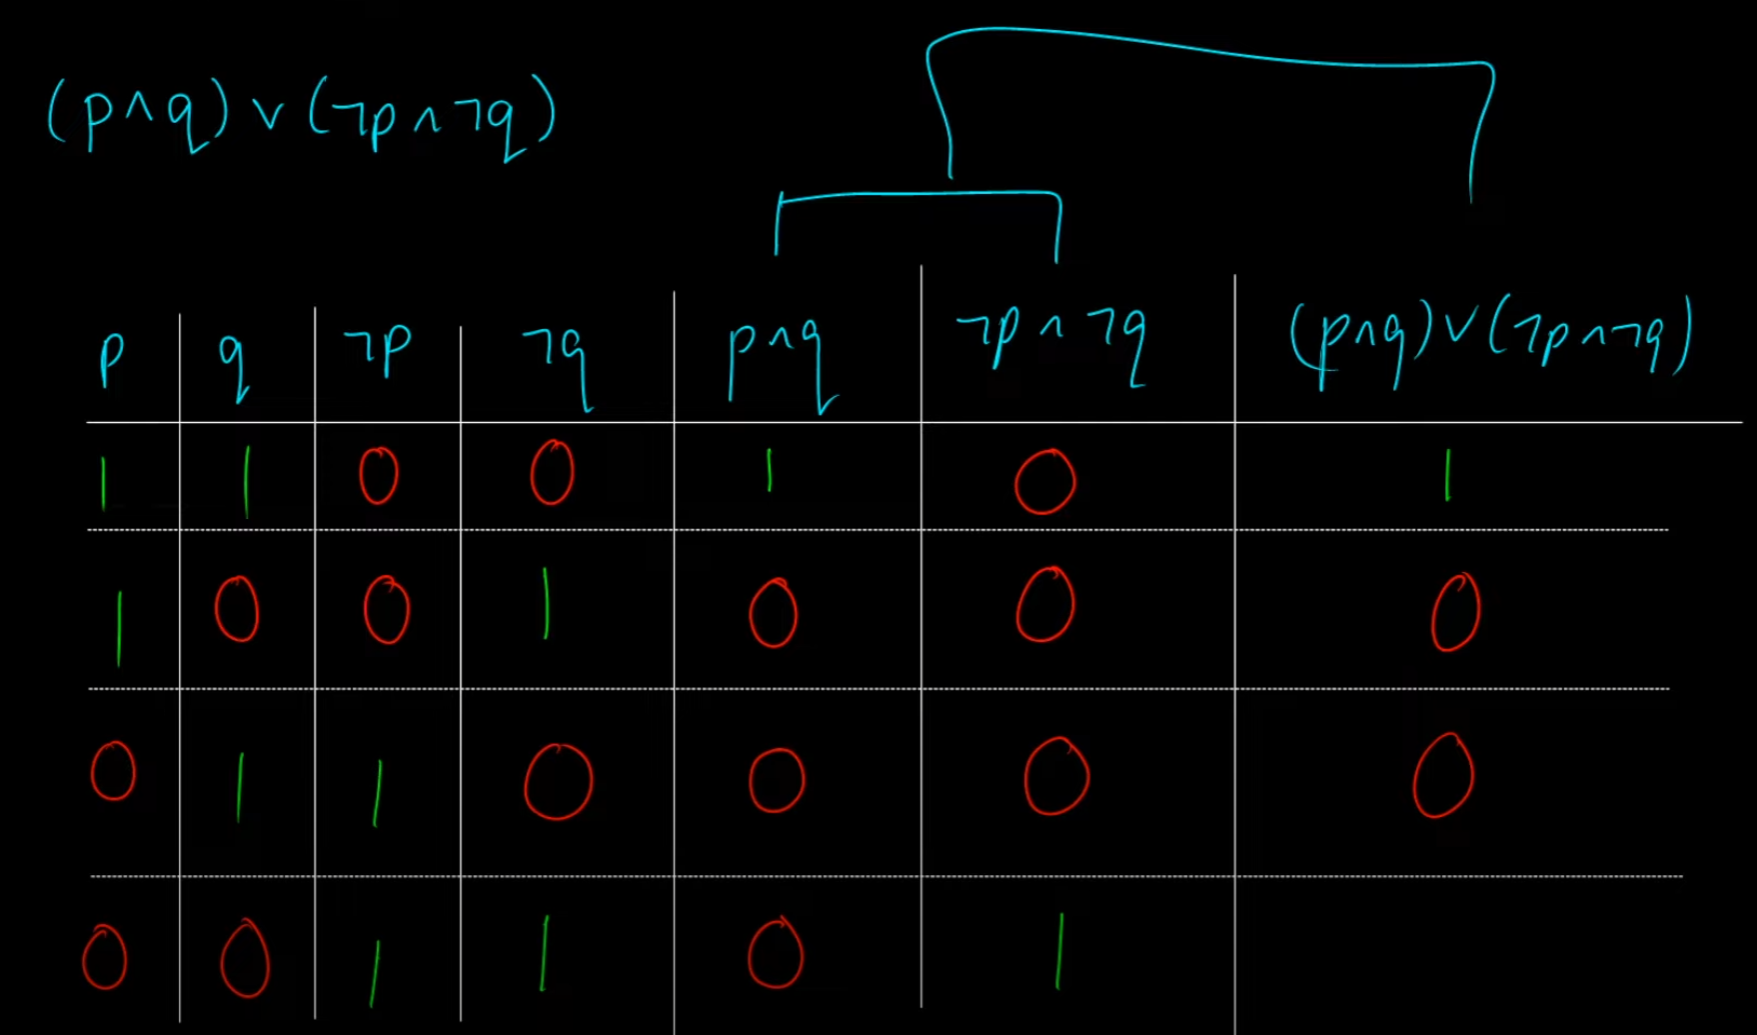 (p∧q)∨(¬p∧¬q)
p q ¬p ¬q p∧q ¬p∧¬q (p∧q)∨(¬p∧¬q)
1 1 0 0 1 0 1
1 0 0 1 0 0 0
0 1 1 0 0 0 0
0 0 1 1 0 1